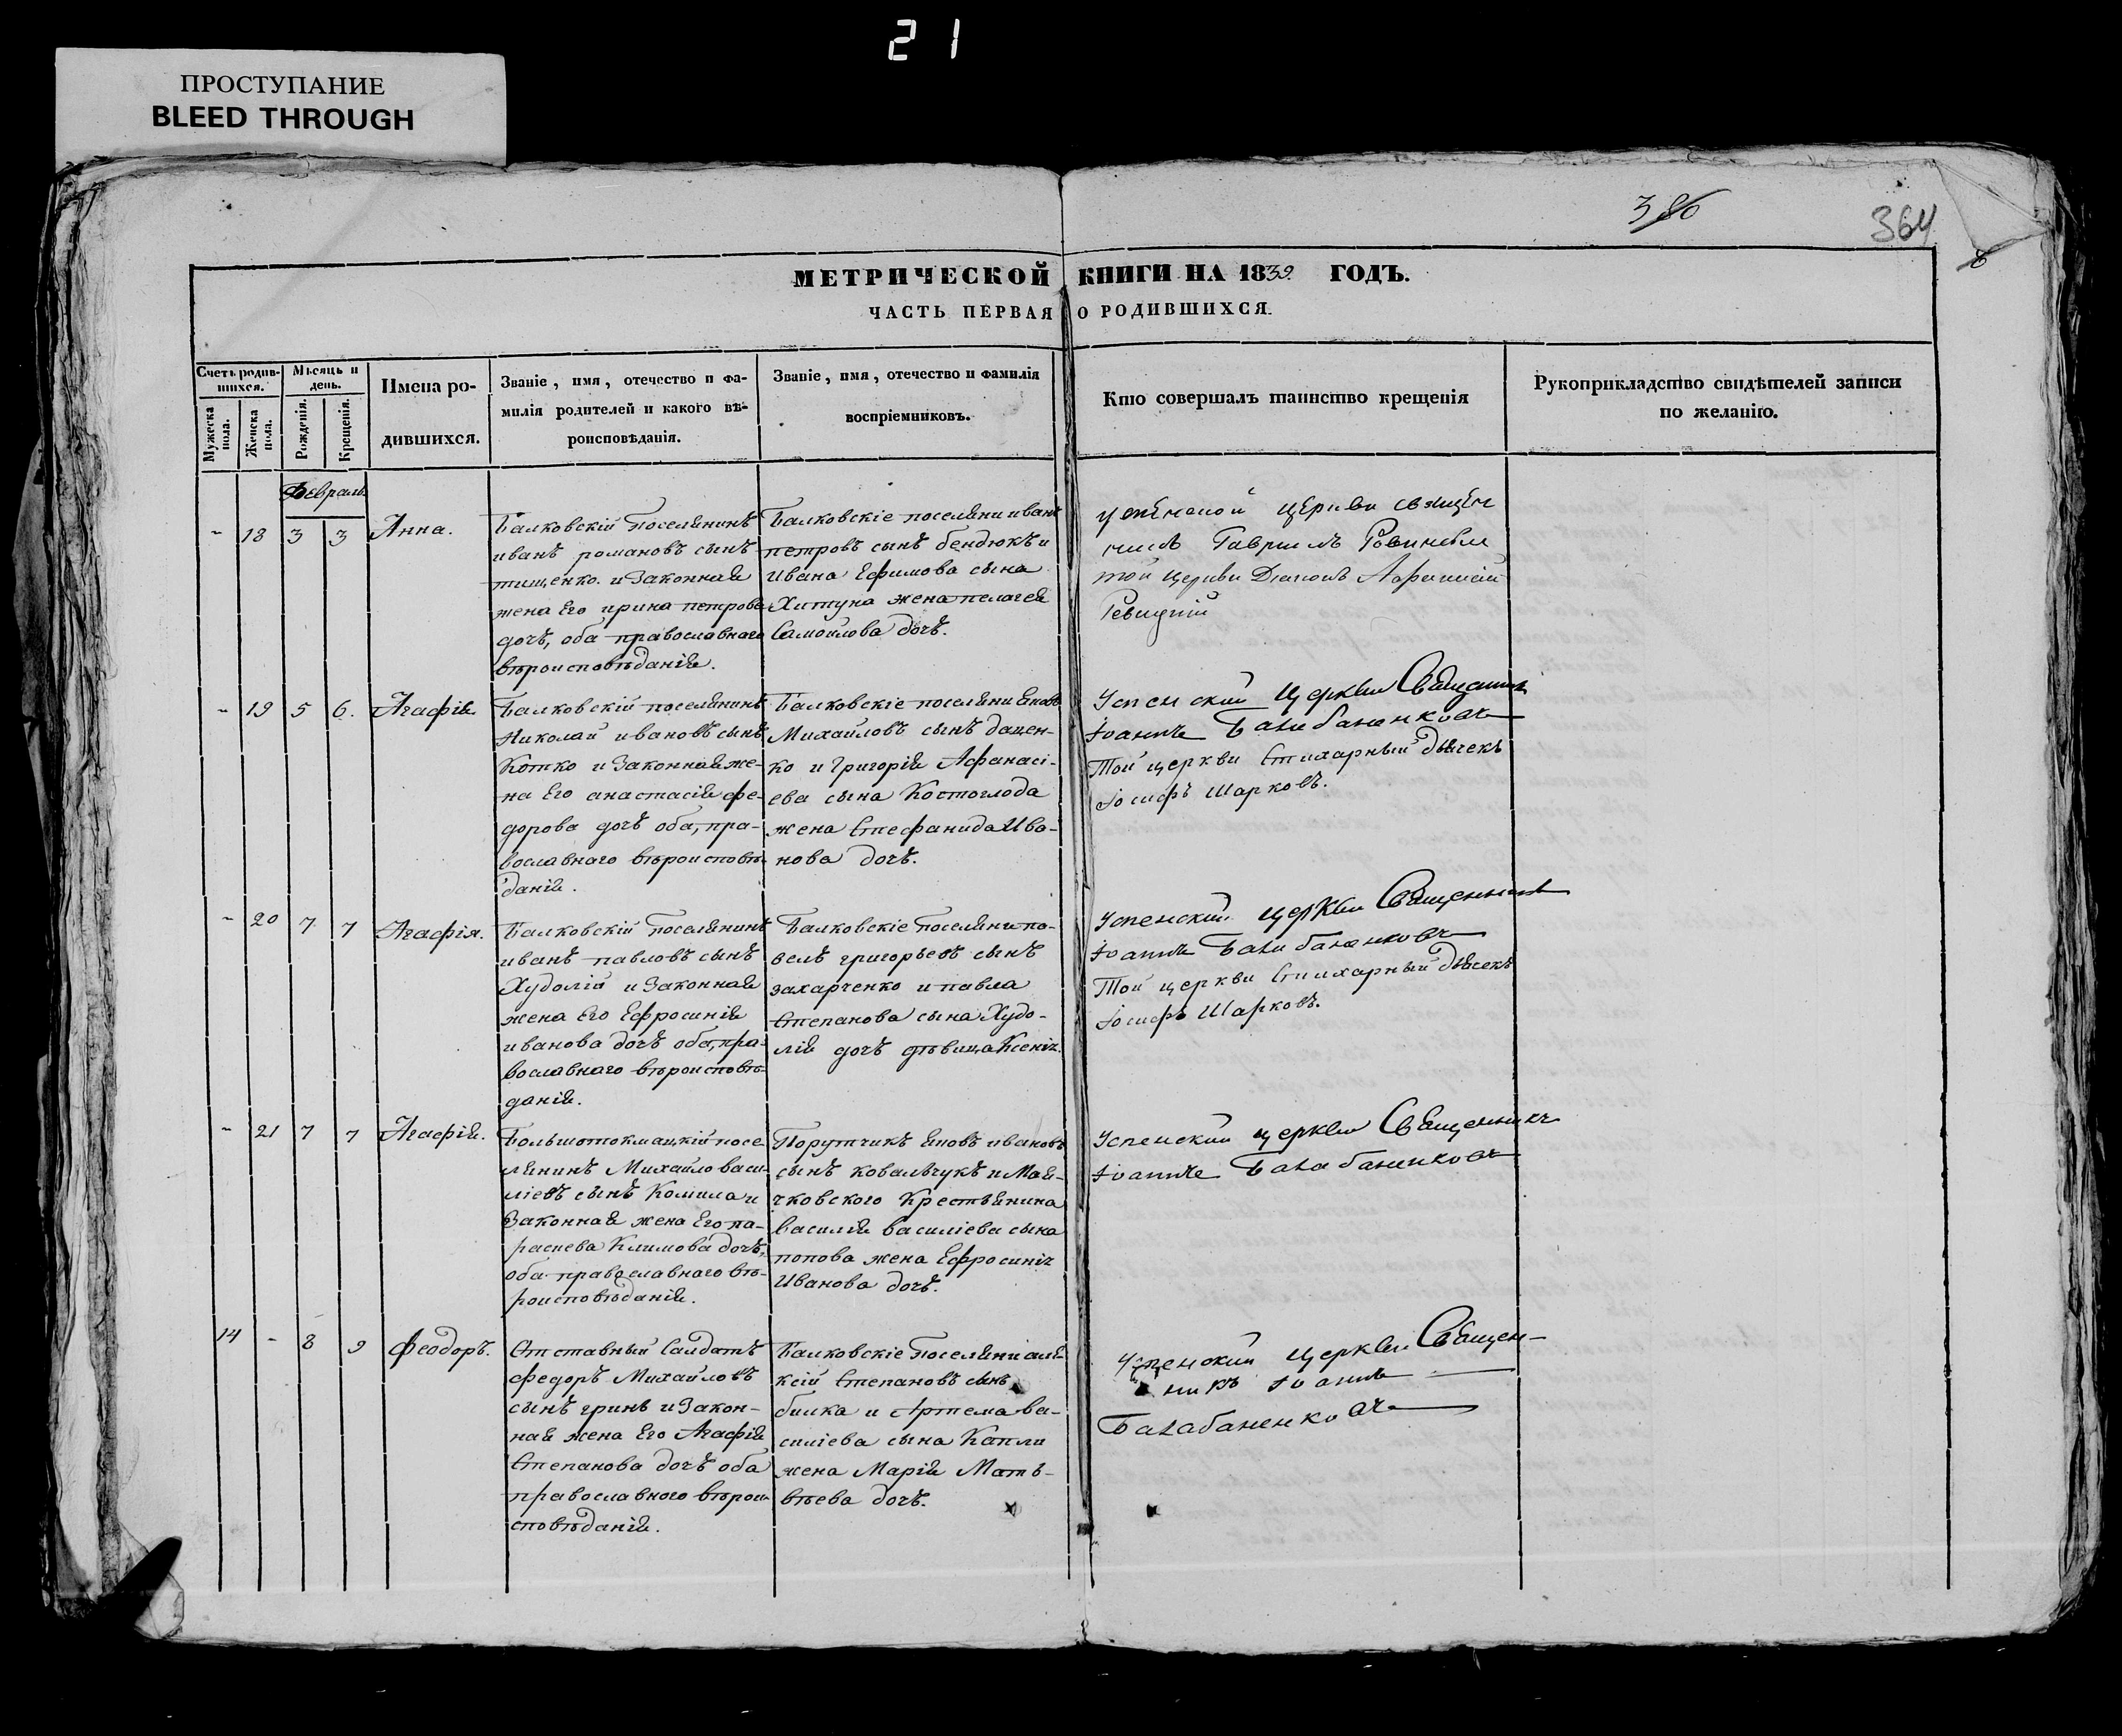 21
ПРОСТУПАНИЕ
BLEED THROUGH
386
364
МЕТРИЧЕСКОЙ КНИГИ НА 1839 ГОДЪ.
ЧАСТЬ ПЕРВАЯ О РОДИВШИХСЯ.
Счетъ родив-
шихся.
Мужеска
пола.
Женска
пола.
Мѣсяцъ и
день.
Рожденія.
Крещенія.
Имена ро-
дившихся.
Званіе, имя, отечество и фа-
милія родителей и какого вѣ-
роисповѣданія.
Званіе, имя, отечество и фамилія
воспріемниковъ.
Кто совершалъ таинство крещенія
Рукоприкладство свидѣтелей записи
по желанію.
Февраль
- 18 3 3 Анна.
Балковскій поселянинъ
иванъ романовъ сынъ
тищенко. и законная
жена Его ирина петрова
дочѣ, оба православнаго
вѣроисповѣданія.
Балковскіе поселяни иванъ
петровъ сынъ бендюкъ и
Ивана Ефимова сына
Хитуна жена пелагея
Самойлова дочѣ.
церкви священ
никъ Гавриилъ
той церкви Диаконъ
Ревицкій
- 19 5 6. Агафія.
Балковскій поселянинъ
Николай ивановъ сынъ
Котко и Законная же-
на Его анастасія фе-
дорова дочѣ оба, пра-
вославнаго вѣроисповѣ-
данія.
Балковскіе поселяни Яковъ
Михайловъ сынъ дацен-
ко и Григорія Афанасі-
ева сына Костоглода
жена Стефанида Ива-
нова дочѣ.
Успенскій церкви Священникъ
Іоаннъ Балабаненковъ
Той церкви Стихарный дьячекъ
Іосифъ Шарковъ.
- 20 7 7 Агафія.
Балковскій поселянинъ
иванъ павловъ сынъ
Худолій и Законная
жена Его Ефросинія
иванова дочѣ оба, пра-
вославнаго вѣроисповѣ-
данія.
Балковскіе поселяни па-
велъ григорьевъ сынъ
захарченко и павла
Степанова сына Худо-
лія дочѣ дѣвица Ксенія.
Успенскій церкви Священникъ
Іоаннъ Балабаненковъ
Той церкви Стихарный дьячекъ
Іосифъ Шарковъ.
- 21 7 7 Агафія.
Большотокмацкій посе
лянинъ Михайло васи-
ліевъ сынъ и
Законная жена Его па-
раскева Климова дочѣ,
оба православнаго вѣ-
роисповѣданія.
Порутчикъ Яковъ ивановъ
сынъ ковальчукъ и Мая-
чковского Крестьянина
василія василіева сына
попова жена Ефросинія
Иванова дочѣ.
Успенскій церкви Священникъ
Іоаннъ Балабаненковъ
14 - 8 9 Феодоръ.
Отставный Салдатъ
федоръ Михайловъ
сынъ гринь и Закон-
ная жена Его Агафія
Степанова дочѣ оба
православнаго вѣрои-
сповѣданія.
Балковскіе поселяни але-
ксій Степановъ сынъ
билка и Артема ва-
силіева сына Капли
жена Марія Матъ-
вѣева дочѣ.
Успенскій церкви Священ-
никъ Іоаннъ
Балабаненковъ